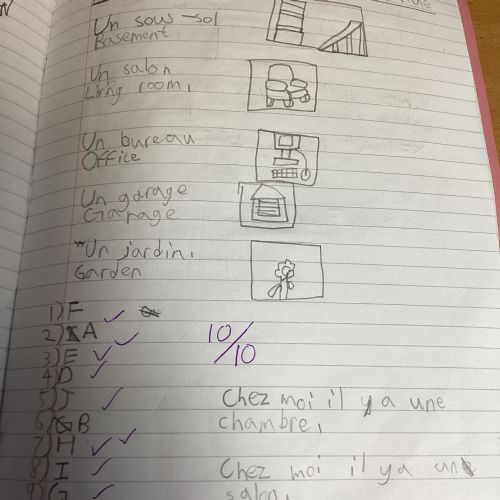 Un sous-sol
Basement
Un salon
Living room.
Un bureau
Office
Un garage
Garage
Un jardin.
Garden
1) F
2) A
3) E
10/10
4) D
5) J
Chez moi il y a une
6) B
chambre.
7) H
8) I
Chez moi il y a un
9) G
salon.